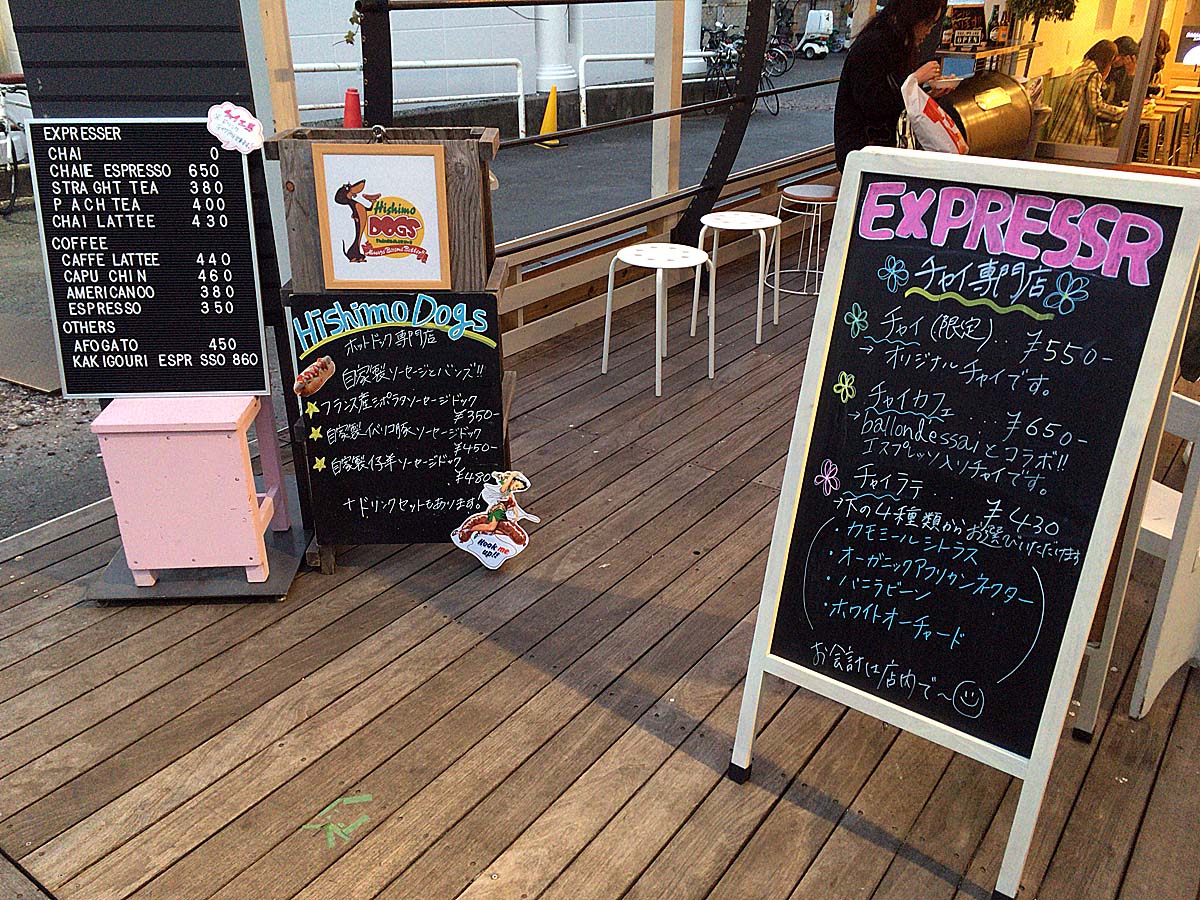 EXPRESSER
CHAI 0
CHAIE ESPRESSO 650
STRA GHT TEA 380
P ACH TEA 400
CHAI LATTEE 430
COFFEE
CAFFE LATTEE 440
CAPU CHIN 460
AMERICANOO 380
ESPRESSO 350
OTHERS
AFOGATO 450
KAKIGOURI ESPR SSO 860
Hishimo
DOGS
Always Become Bubbly
Hishimo Dogs
ホットドック専門店
自家製ソーセージとバンズ!!
フランス産シポラタソーセージドック
¥350-
自家製イベリコ豚ソーセージドック
¥450-
自家製仔羊ソーセージドック
¥480
+ドリンクセットもあります!
Hook me
up!!
OPEN
EXPRESSR
チャイ専門店
チャイ(限定).. ¥550-
→オリジナルチャイです。
チャイカフェ... ¥650-
→ballondessaiとコラボ!!
エスプレッソ入りチャイです。
チャイラテ... ¥430
下の4種類からお選びいただけます
・カモミールシトラス
・オーガニックアフリカンネクター
・バニラビーン
・ホワイトオーチャード
お会計は店内で〜